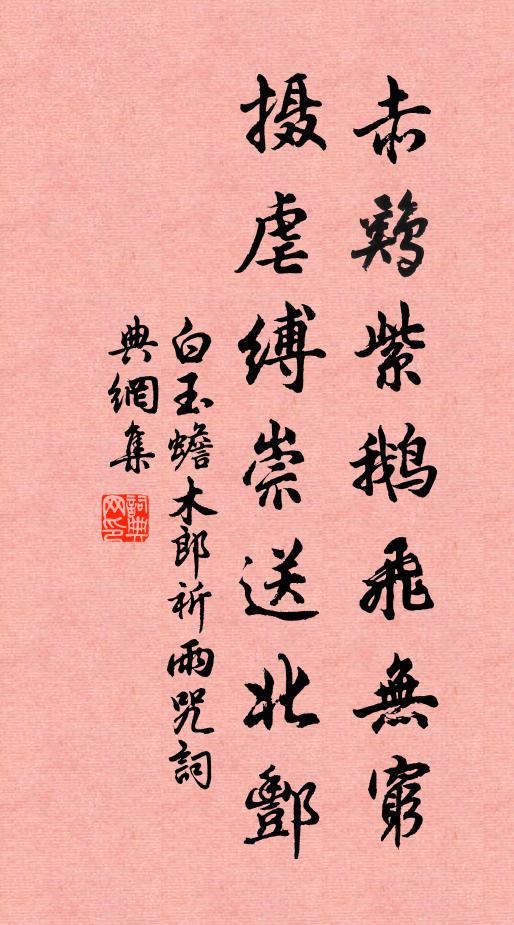 赤鷄紫鵝飛無窮
摄虐縛祟送北酆
白玉蟾木郎祈雨咒詞
典網集
詞典
网印